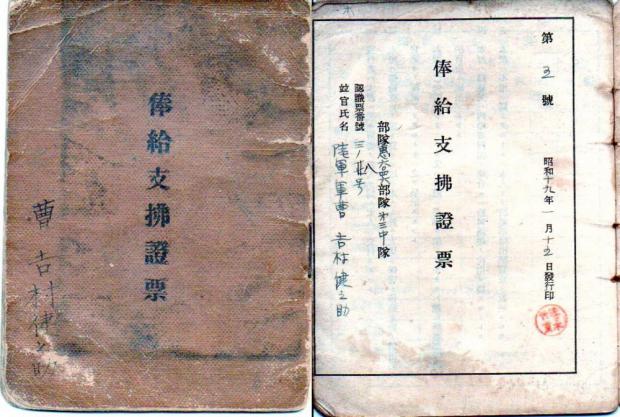 俸給支拂證票
曹 吉村健之助
第 五 號
昭和十九年一月十五日發行印
俸給支拂證票
部隊 部隊第三中隊
認識票番號 三ノ 号
竝官氏名 陸軍軍曹 吉村健之助